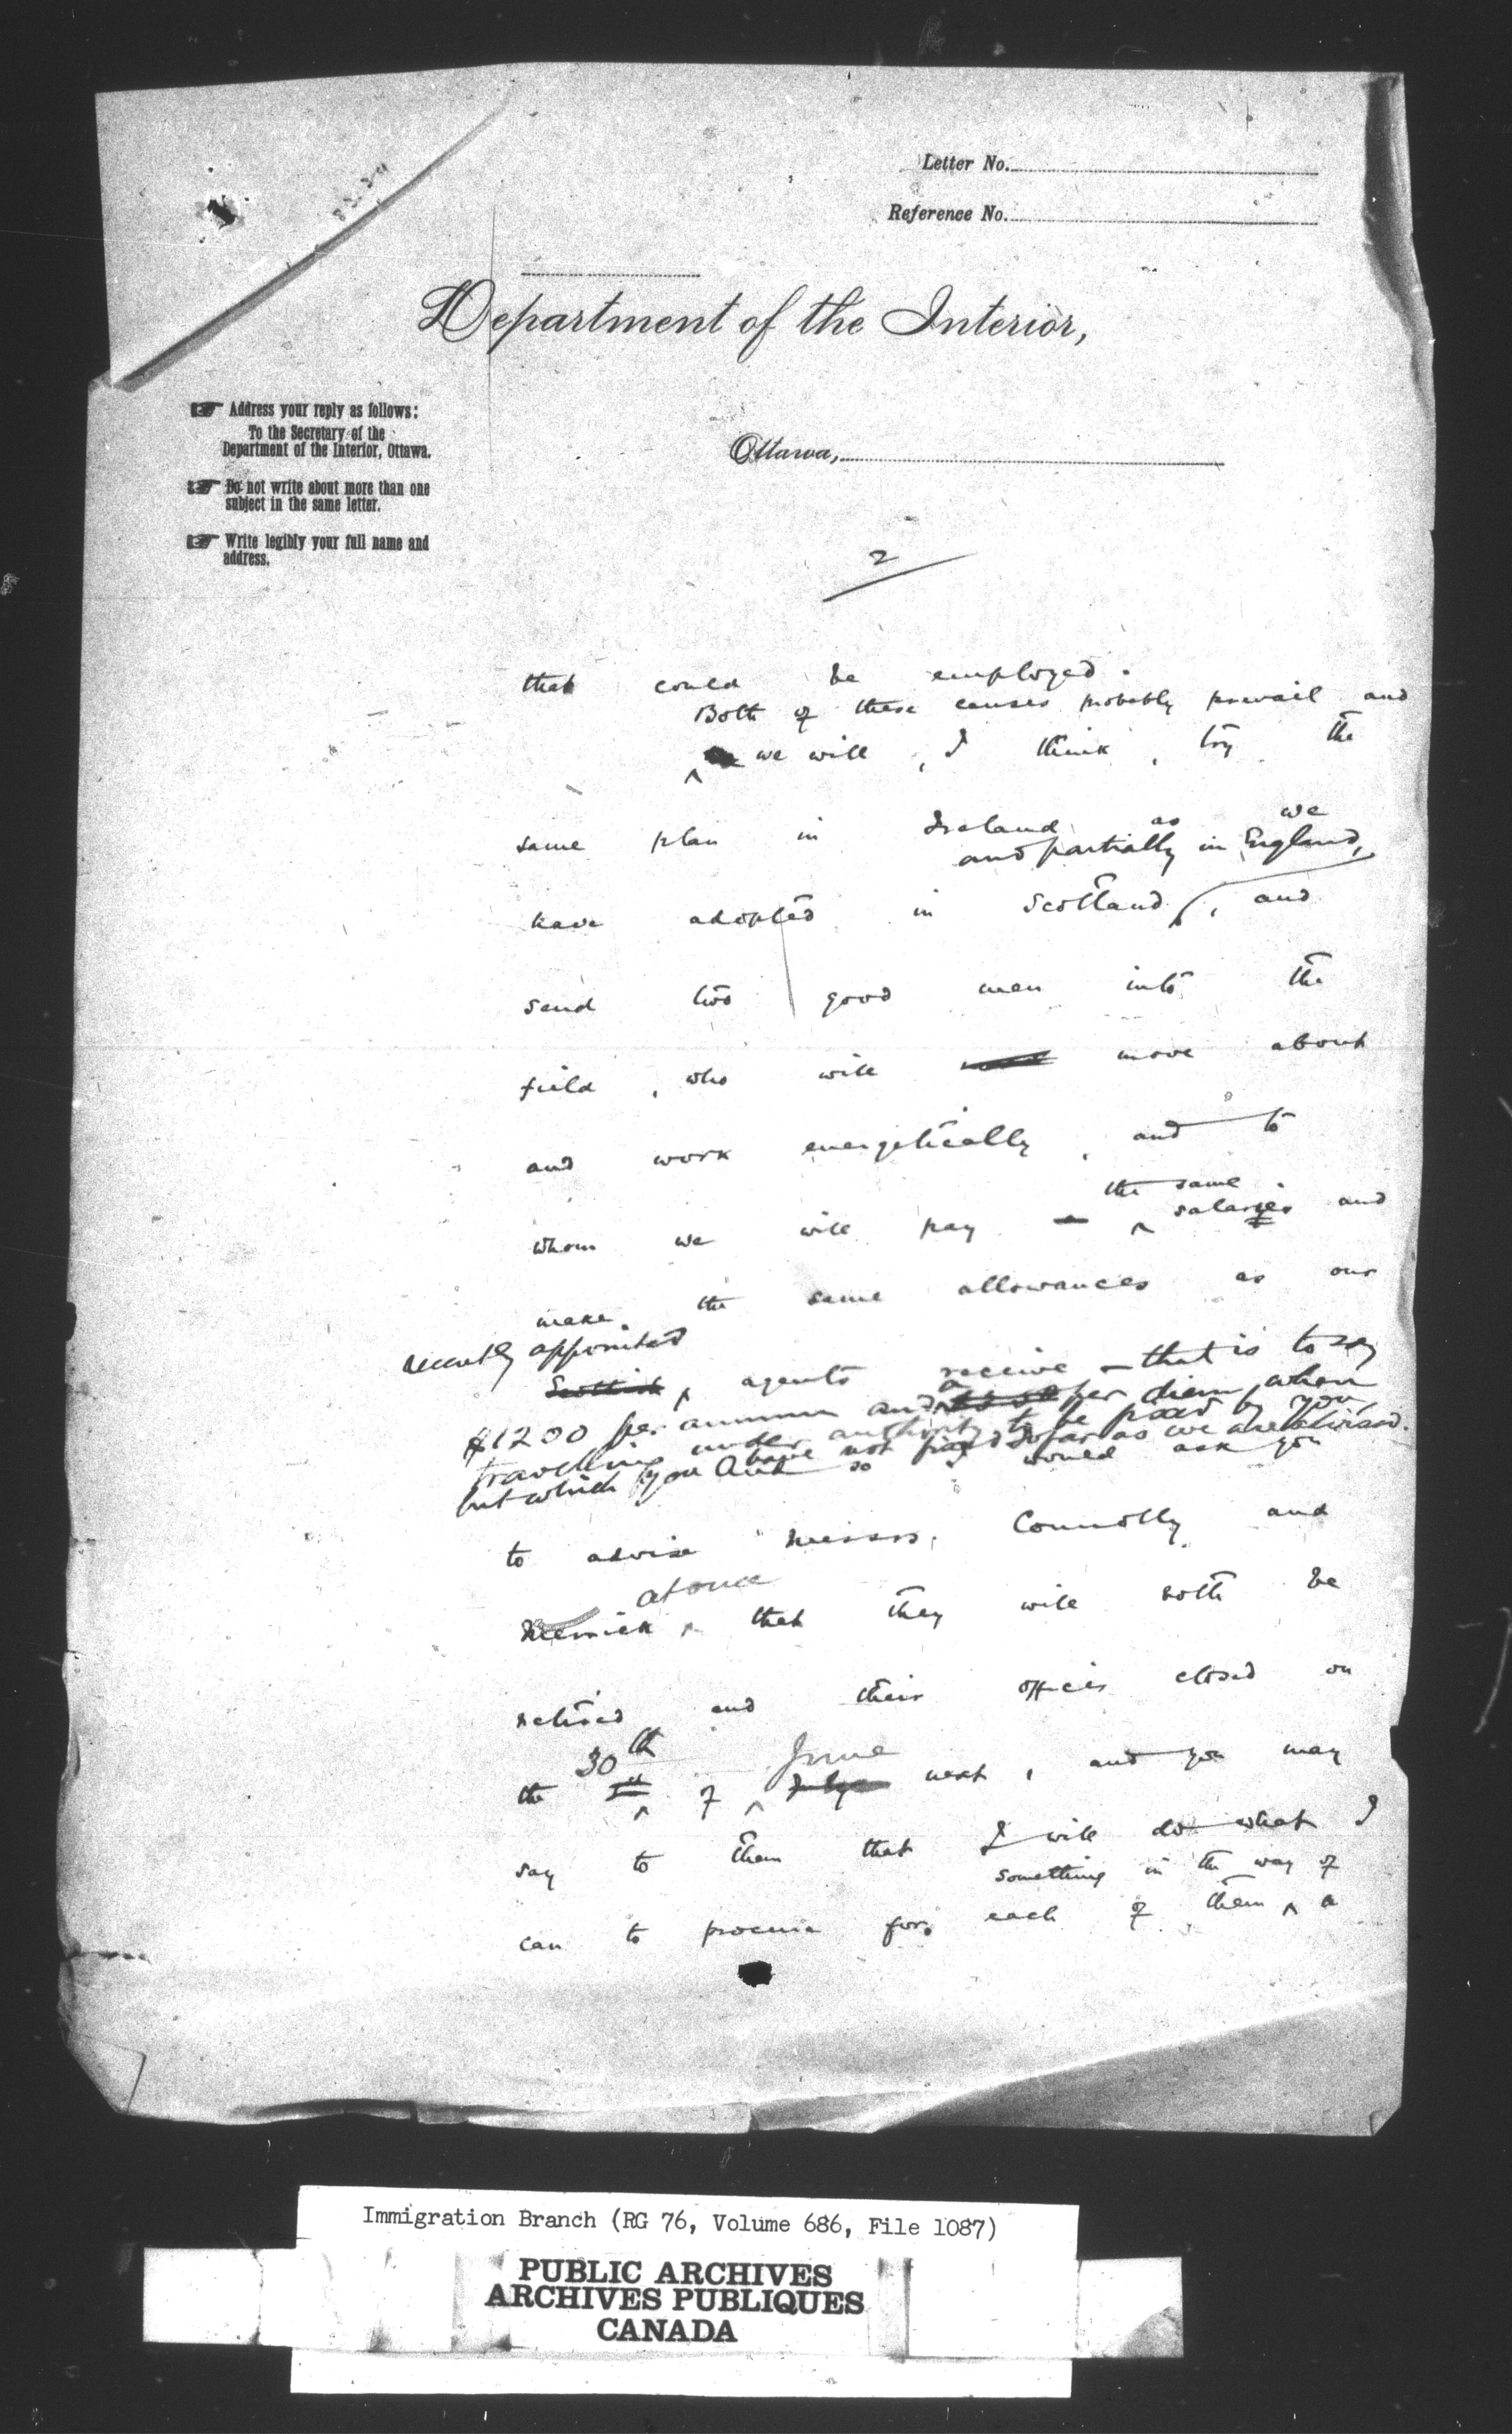 Letter No.
Reference No.
Department of the Interior,
Address your reply as follows:
To the Secretary of the
Department of the Interior, Ottawa.
Do not write about more than one
subject in the same letter.
Write legibly your full name and
address.
Ottawa,
2
that could be employed.
Both of these causes probably prevail and
we will, I think, try the
same plan in Ireland as we
and partially in England,
have adopted in Scotland, and
send two good men into the
field, who will move about
and work energetically, and to
the same
whom we will pay salaries and
make the same allowances as our
recently appointed
Scottish agents receive – that is to say
$1200 per annum and a per diem, when
travelling under authority to be fixed by you
but which you have not fixed so far as we are advised.
And so I would ask you
to advise Messrs. Connolly and
at once
Merrick that they will both be
retired and their offices closed on
30th June
the 1st of July next, and you may
say to them that I will do what I
something in the way of
can to procure for each of them a
Immigration Branch (RG 76, Volume 686, File 1087)
PUBLIC ARCHIVES
ARCHIVES PUBLIQUES
CANADA